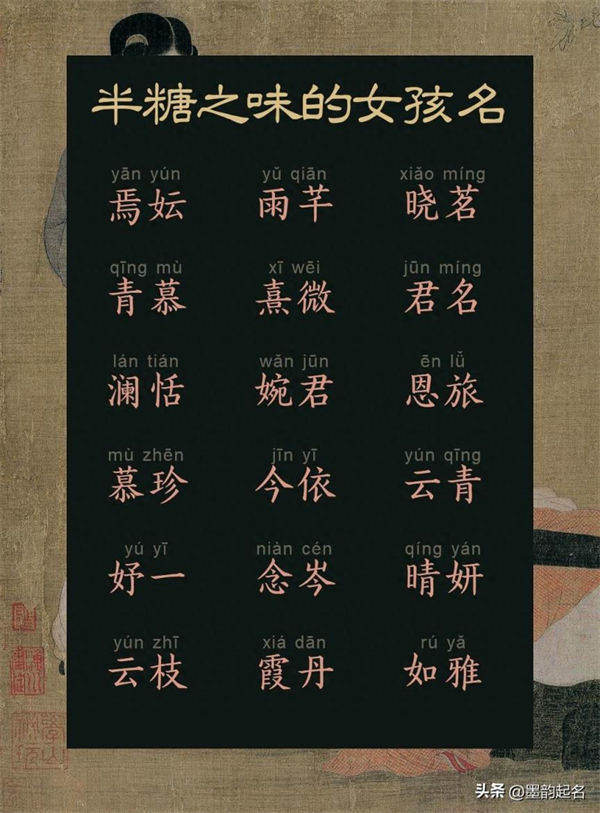 半糖之味的女孩名
yān yún yǔ qiān xiǎo míng
焉妘 雨芊 晓茗
qīng mù xī wēi jūn míng
青慕 熹微 君名
lán tián wǎn jūn ēn lǚ
澜恬 婉君 恩旅
mù zhēn jīn yī yún qīng
慕珍 今依 云青
yú yī niàn cén qíng yán
妤一 念岑 晴妍
yún zhī xiá dān rú yǎ
云枝 霞丹 如雅
头条 @墨韵起名